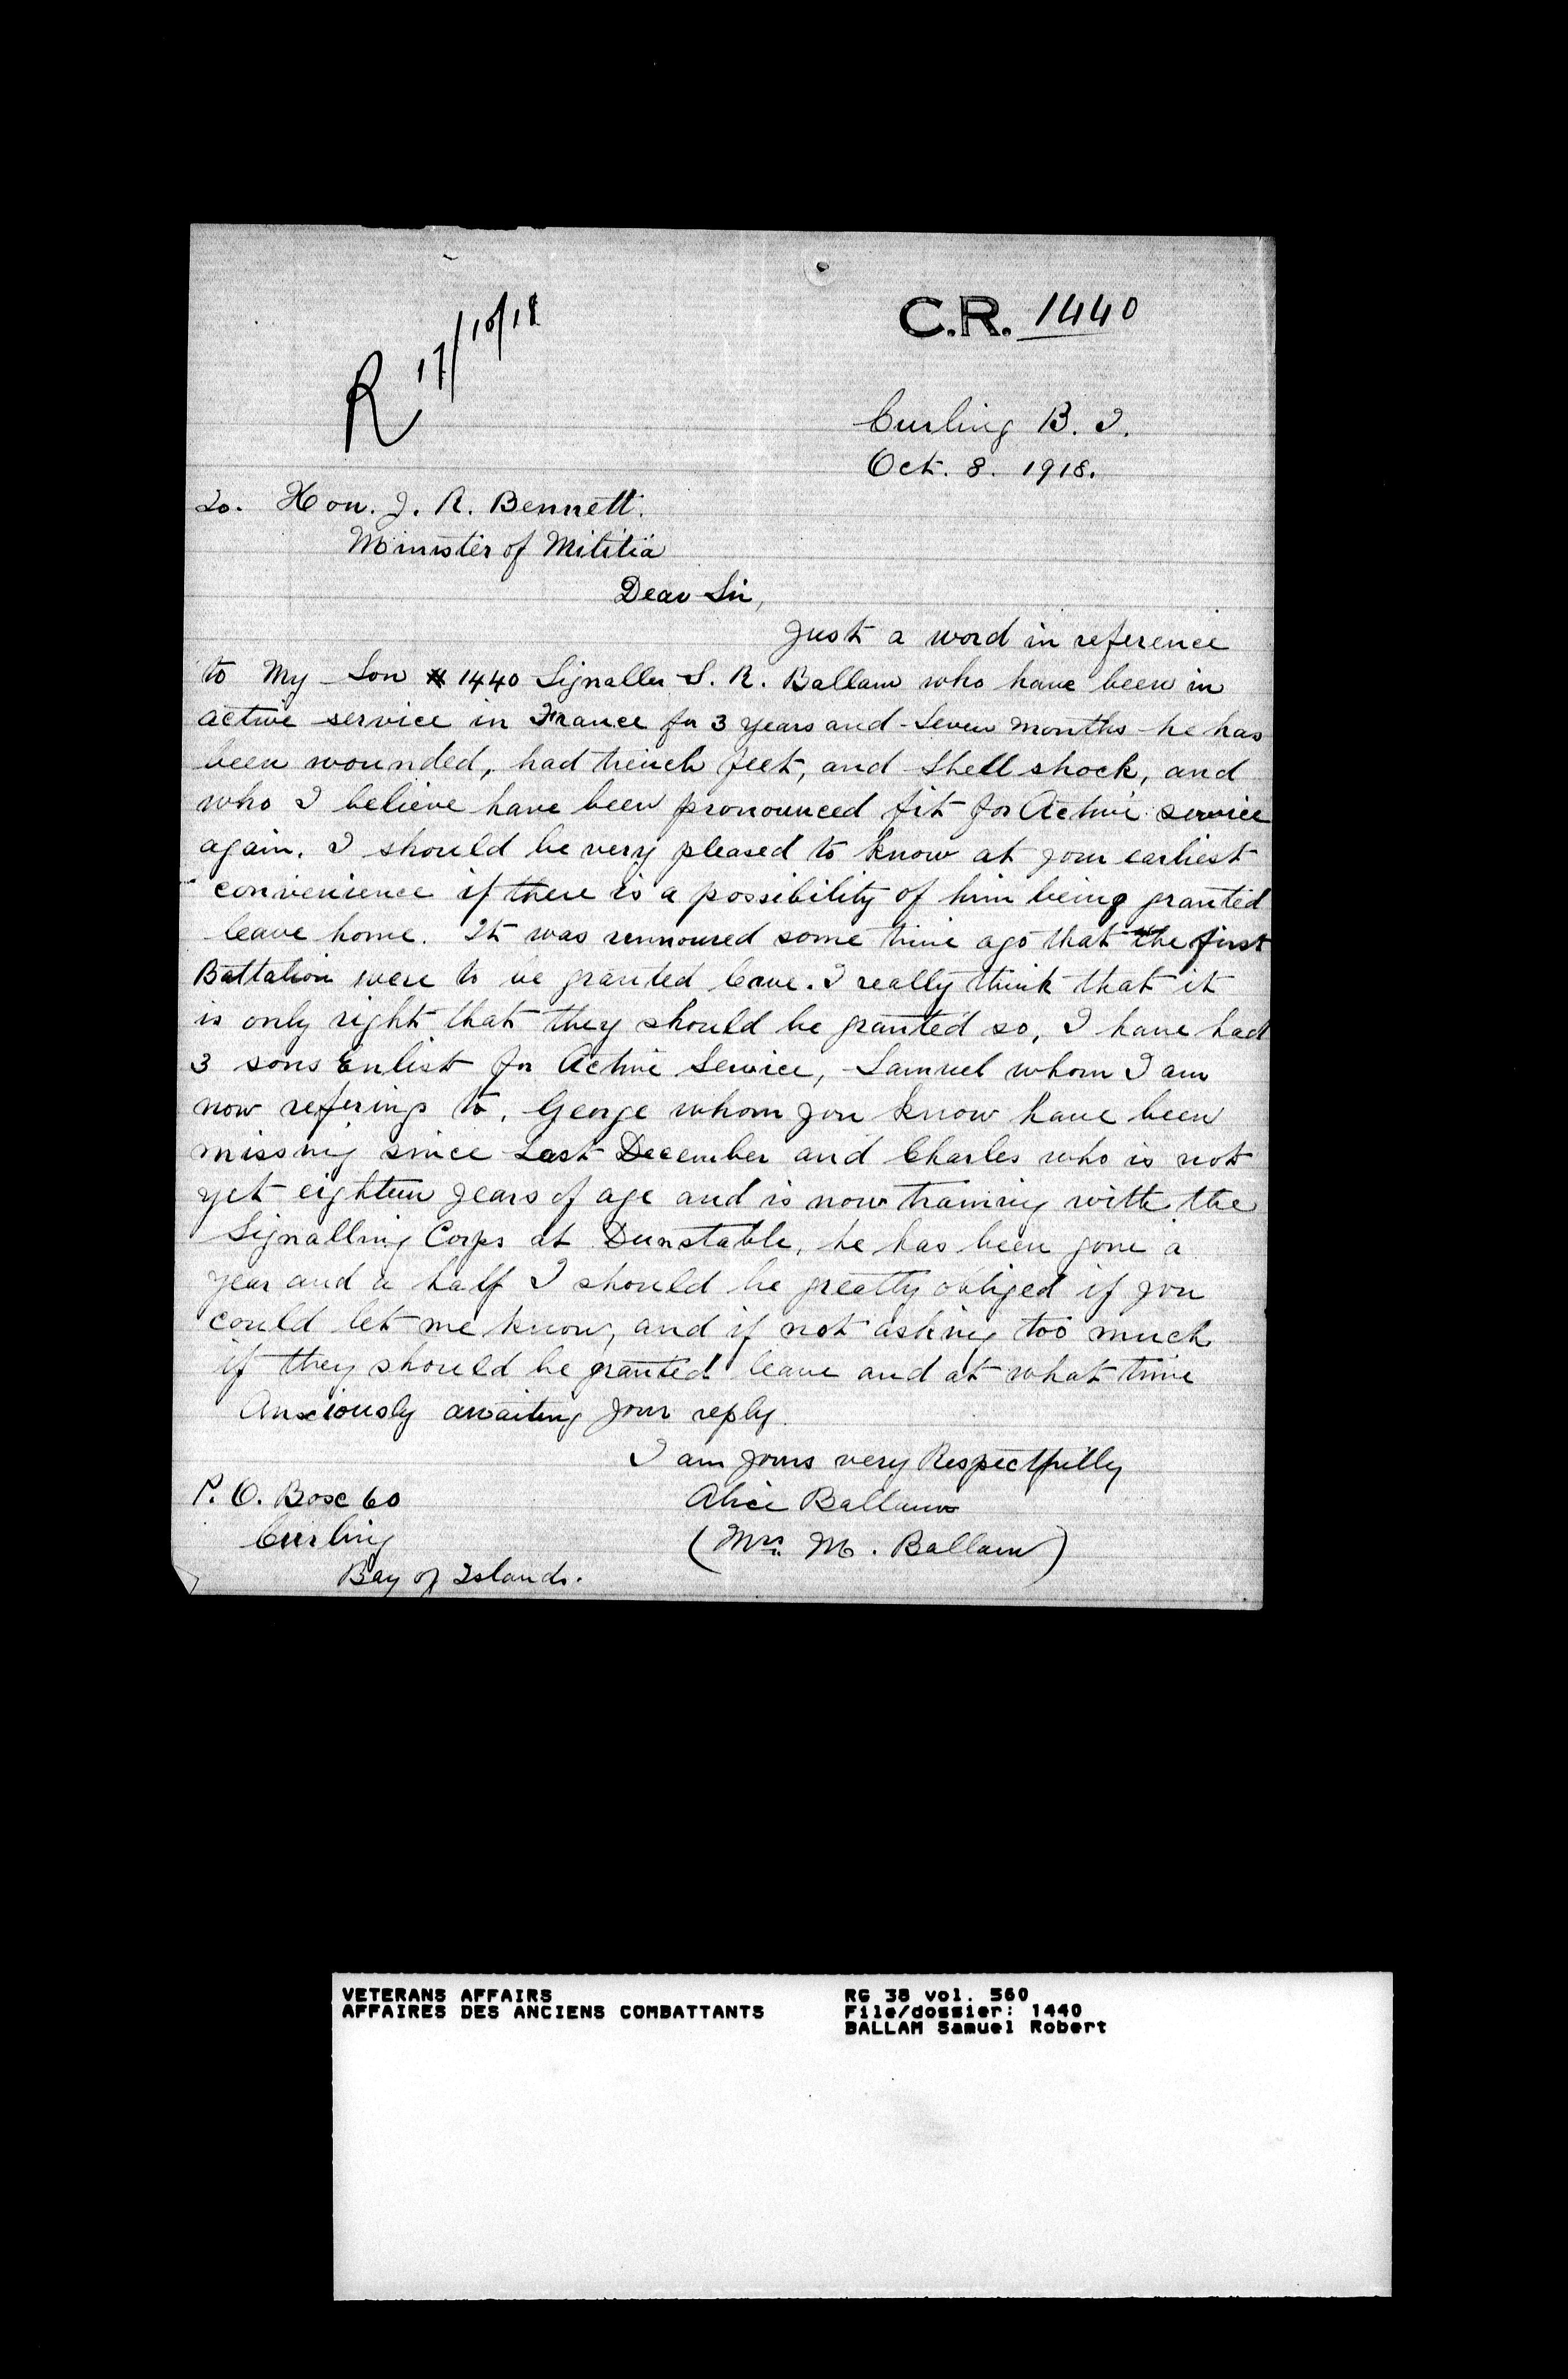 C.R. 1440
R 17/10/18
Curling B. I.
Oct. 8. 1918.
To. Hon. J. R. Bennett.
Minister of Militia
Dear Sir,
Just a word in reference
to My Son # 1440 Signaller S. R. Ballam who have been in
active service in France for 3 years and Seven months he has
been wounded, had trench feet, and Shell shock, and
who I believe have been pronounced fit for Active service
again. I should be very pleased to know at your earliest
convenience if there is a possibility of him being granted
leave home. It was rumoured some time ago that the first
Battalion were to be granted leave. I really think that it
is only right that they should be granted so, I have had
3 sons Enlist for Active Service, Samuel whom I am
now refering to, George whom you know have been
missing since Last December and Charles who is not
yet eighteen years of age and is now training with the
Signalling Corps at Dunstable, he has been gone a
year and a half I should be greatly obliged if you
could let me know, and if not asking too much
if they should be granted leave and at what time
Anxiously awaiting your reply.
I am yours very Respectfully
Alice Ballam
(Mrs. M. Ballam)
P. O. Box 60
Curling
Bay of Islands.
VETERANS AFFAIRS
AFFAIRES DES ANCIENS COMBATTANTS
RG 38 vol. 560
File/dossier: 1440
BALLAM Samuel Robert